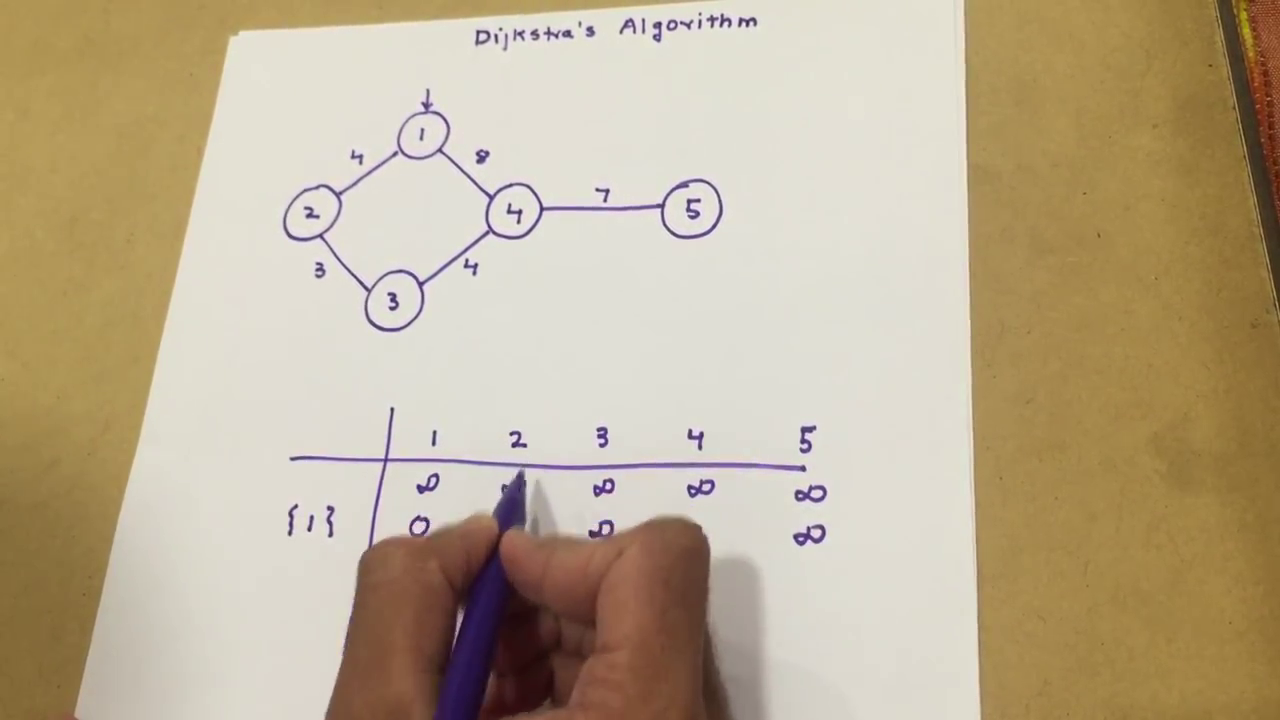 Dijkstra's Algorithm
1
4 8
2 4 7 5
3 4
3
1 2 3 4 5
∞ ∞ ∞ ∞
{1} 0 ∞ ∞